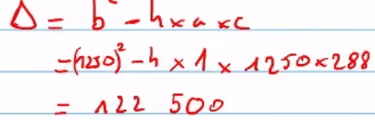 Δ = b² - 4 × a × c
= (1250)² - 4 × 1 × 1250 × 288
= 122 500